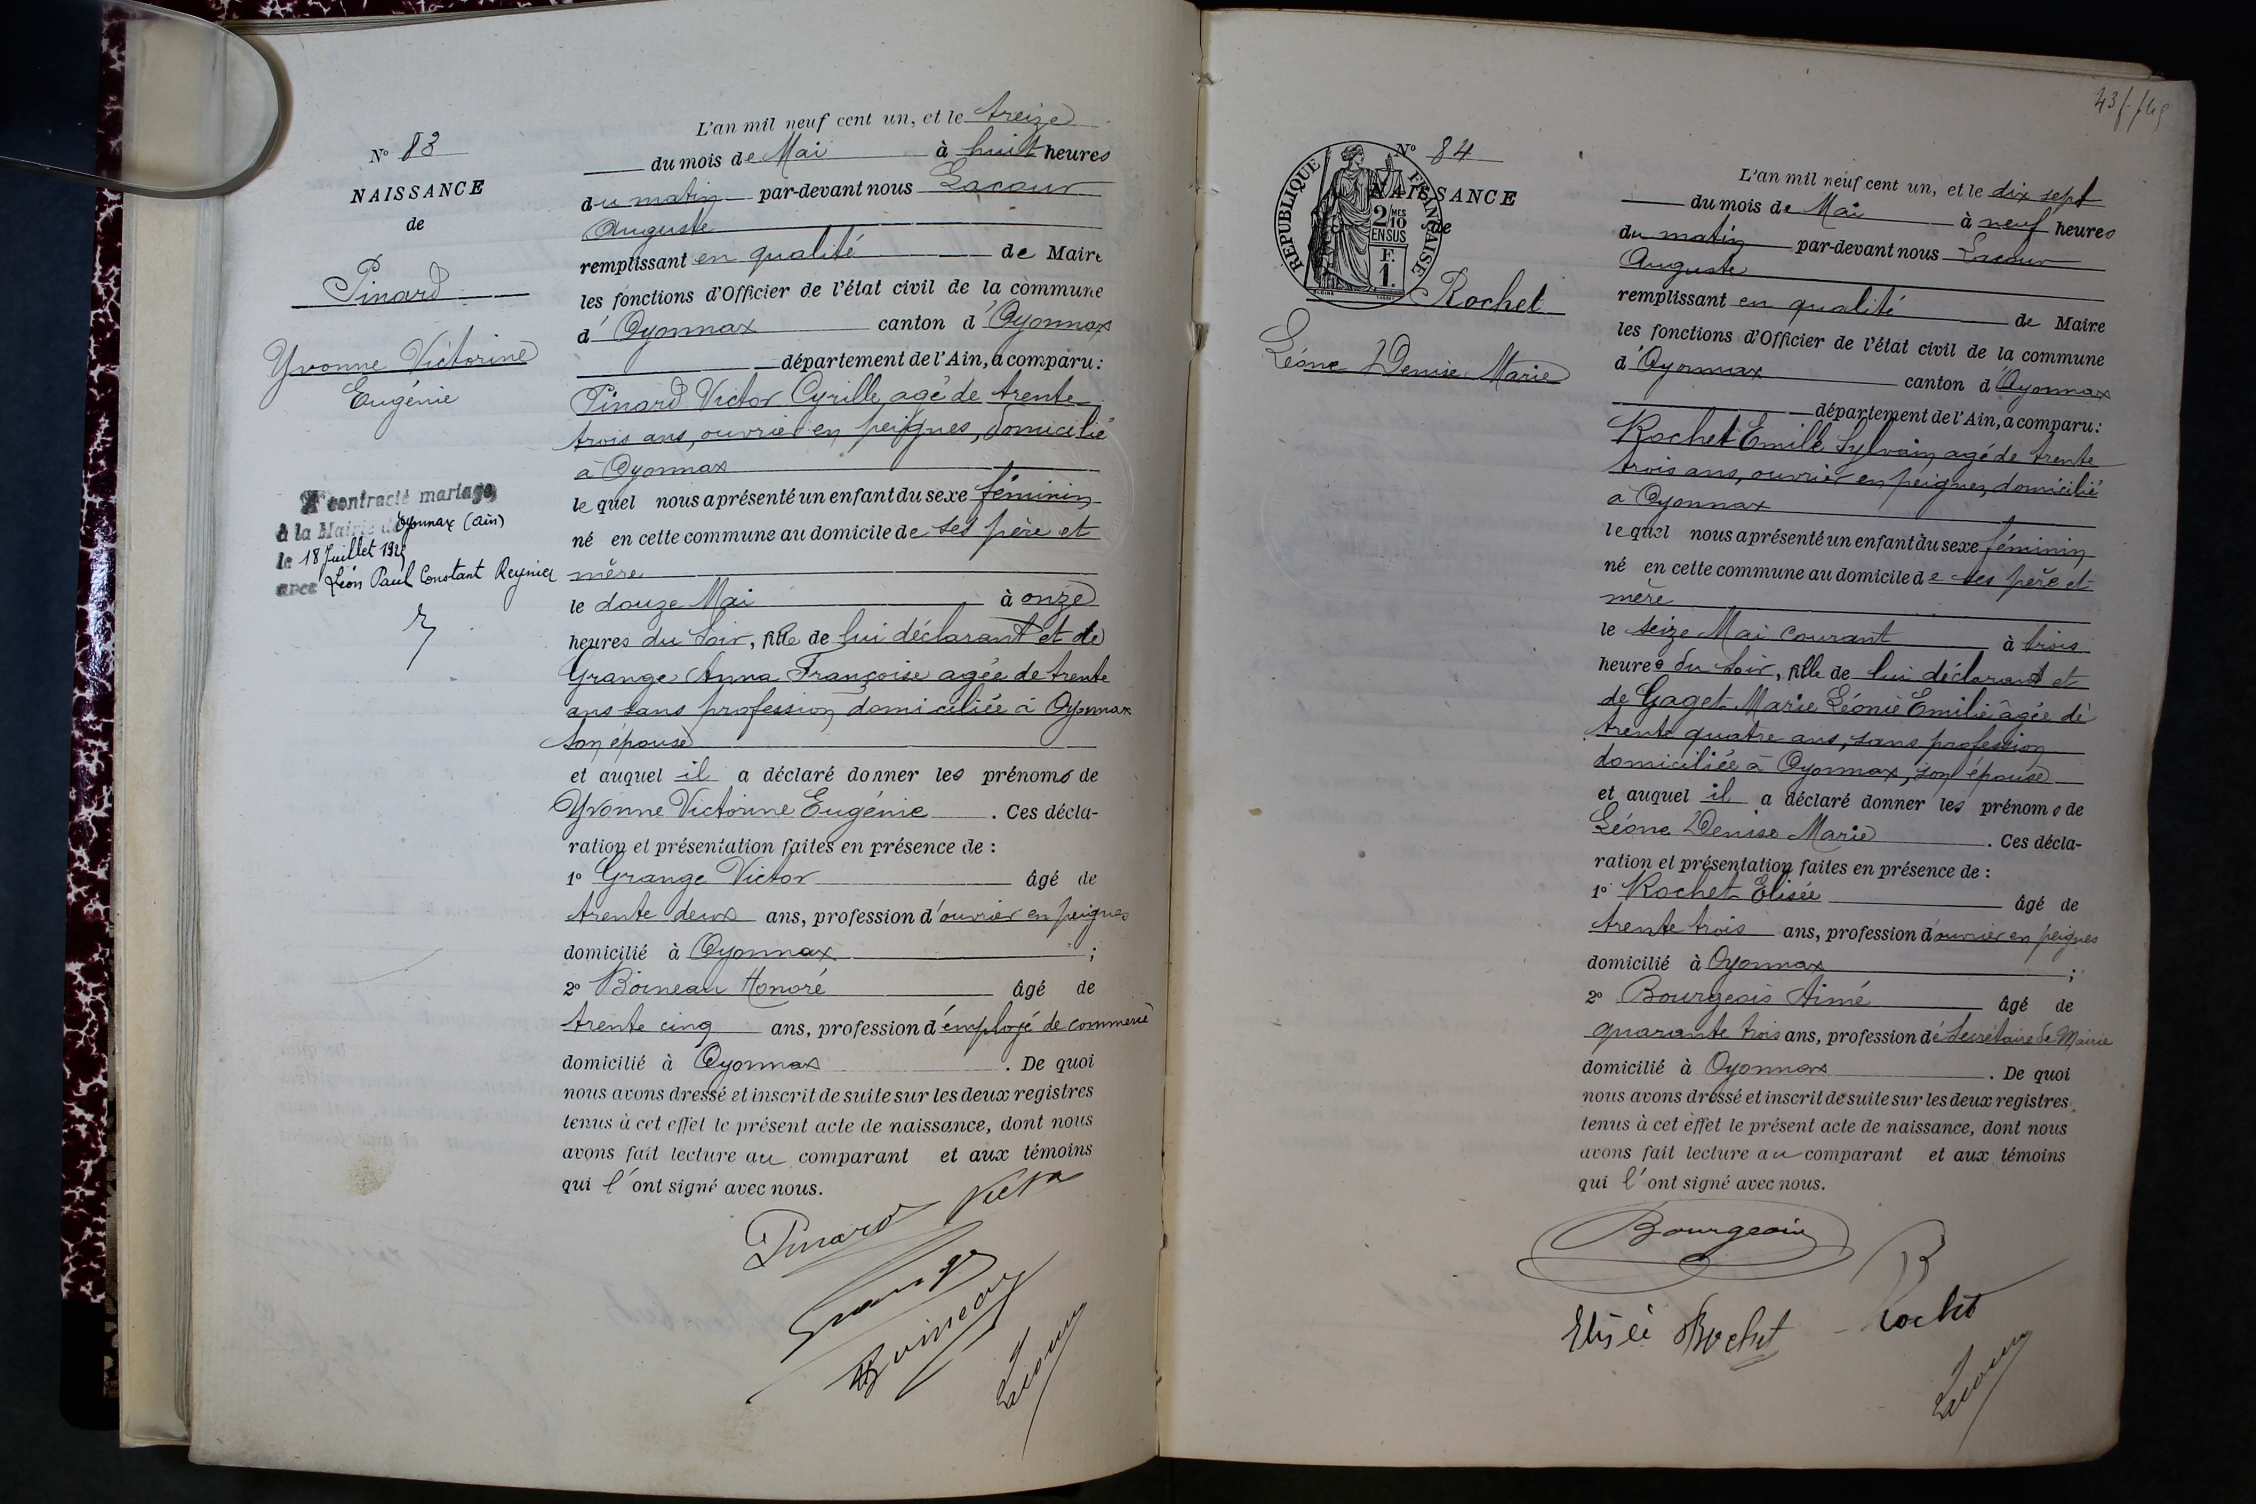 N° 83
NAISSANCE
de
Pinard
Yvonne Victorine
Eugénie
A contracté mariage
à la Mairie d'Oyonnax (Ain)
le 18 Juillet
avec Léon Paul Constant Reynier
L'an mil neuf cent un, et le treize
du mois de Mai à huit heures
du matin par-devant nous Lacour
Auguste
remplissant en qualité de Maire
les fonctions d'Officier de l'état civil de la commune
d'Oyonnax canton d'Oyonnax
département de l'Ain, a comparu :
Pinard Victor Cyrille agé de trente
trois ans, ouvrier en peignes, domicilié
à Oyonnax
lequel nous a présenté un enfant du sexe féminin
né en cette commune au domicile de ses père et
mère
le douze Mai à onze
heures du soir, fille de lui déclarant et de
Grange Anna Françoise agée de trente
ans sans profession domiciliée à Oyonnax
son épouse
et auquel il a déclaré donner les prénoms de
Yvonne Victorine Eugénie. Ces décla-
ration et présentation faites en présence de :
1° Grange Victor âgé de
trente deux ans, profession d'ouvrier en peignes
domicilié à Oyonnax ;
2° Boineau Honoré âgé de
trente cinq ans, profession d'employé de commerce
domicilié à Oyonnax. De quoi
nous avons dressé et inscrit de suite sur les deux registres
tenus à cet effet le présent acte de naissance, dont nous
avons fait lecture au comparant et aux témoins
qui l'ont signé avec nous.
Pinard Victor
Grange
Boineau
Lacour
N° 84
NAISSANCE
de
RÉPUBLIQUE FRANÇAISE
2/10 MES
EN SUS
F.
1.
Rochet
Léone Denise Marie
L'an mil neuf cent un, et le dix sept
du mois de Mai à neuf heures
du matin par-devant nous Lacour
Auguste
remplissant en qualité de Maire
les fonctions d'Officier de l'état civil de la commune
d'Oyonnax canton d'Oyonnax
département de l'Ain, a comparu :
Rochet Emile Sylvain agé de trente
trois ans, ouvrier en peignes, domicilié
à Oyonnax
lequel nous a présenté un enfant du sexe féminin
né en cette commune au domicile de ses père et
mère
le seize Mai courant à trois
heures du soir, fille de lui déclarant et
de Gaget Marie Léonie Emilie âgée de
trente quatre ans, sans profession
domiciliée à Oyonnax, son épouse
et auquel il a déclaré donner les prénoms de
Léone Denise Marie. Ces décla-
ration et présentation faites en présence de :
1° Rochet Elisée âgé de
trente trois ans, profession d'ouvrier en peignes
domicilié à Oyonnax ;
2° Bourgeois Aimé âgé de
quarante trois ans, profession de Secrétaire de Mairie
domicilié à Oyonnax. De quoi
nous avons dressé et inscrit de suite sur les deux registres
tenus à cet effet le présent acte de naissance, dont nous
avons fait lecture au comparant et aux témoins
qui l'ont signé avec nous.
Bourgeois
Elisée Rochet
Rochet
Lacour